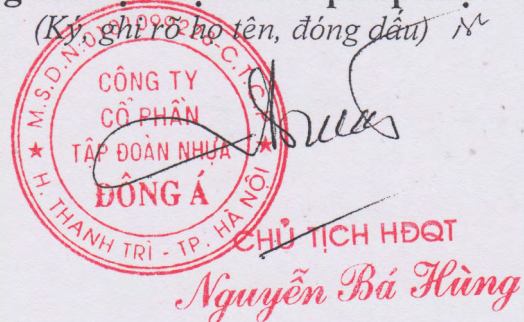 (Ký, ghi rõ họ tên, đóng dấu)
C.T.C.P
CÔNG TY
CỔ PHẦN
TẬP ĐOÀN NHỰA
ĐÔNG Á
H. THANH TRÌ - TP. HÀ NỘI
CHỦ TỊCH HĐQT
Nguyễn Bá Hùng